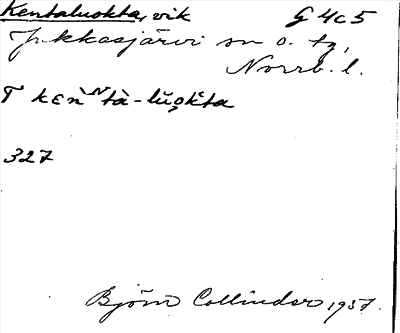 Kentaluokta, vik G 4c5
Jukkasjärvi sn o. tg,
Norrb. l.
T kεn̄ˋtà-lŭo̯kta
327
Björn Collinder 1937.